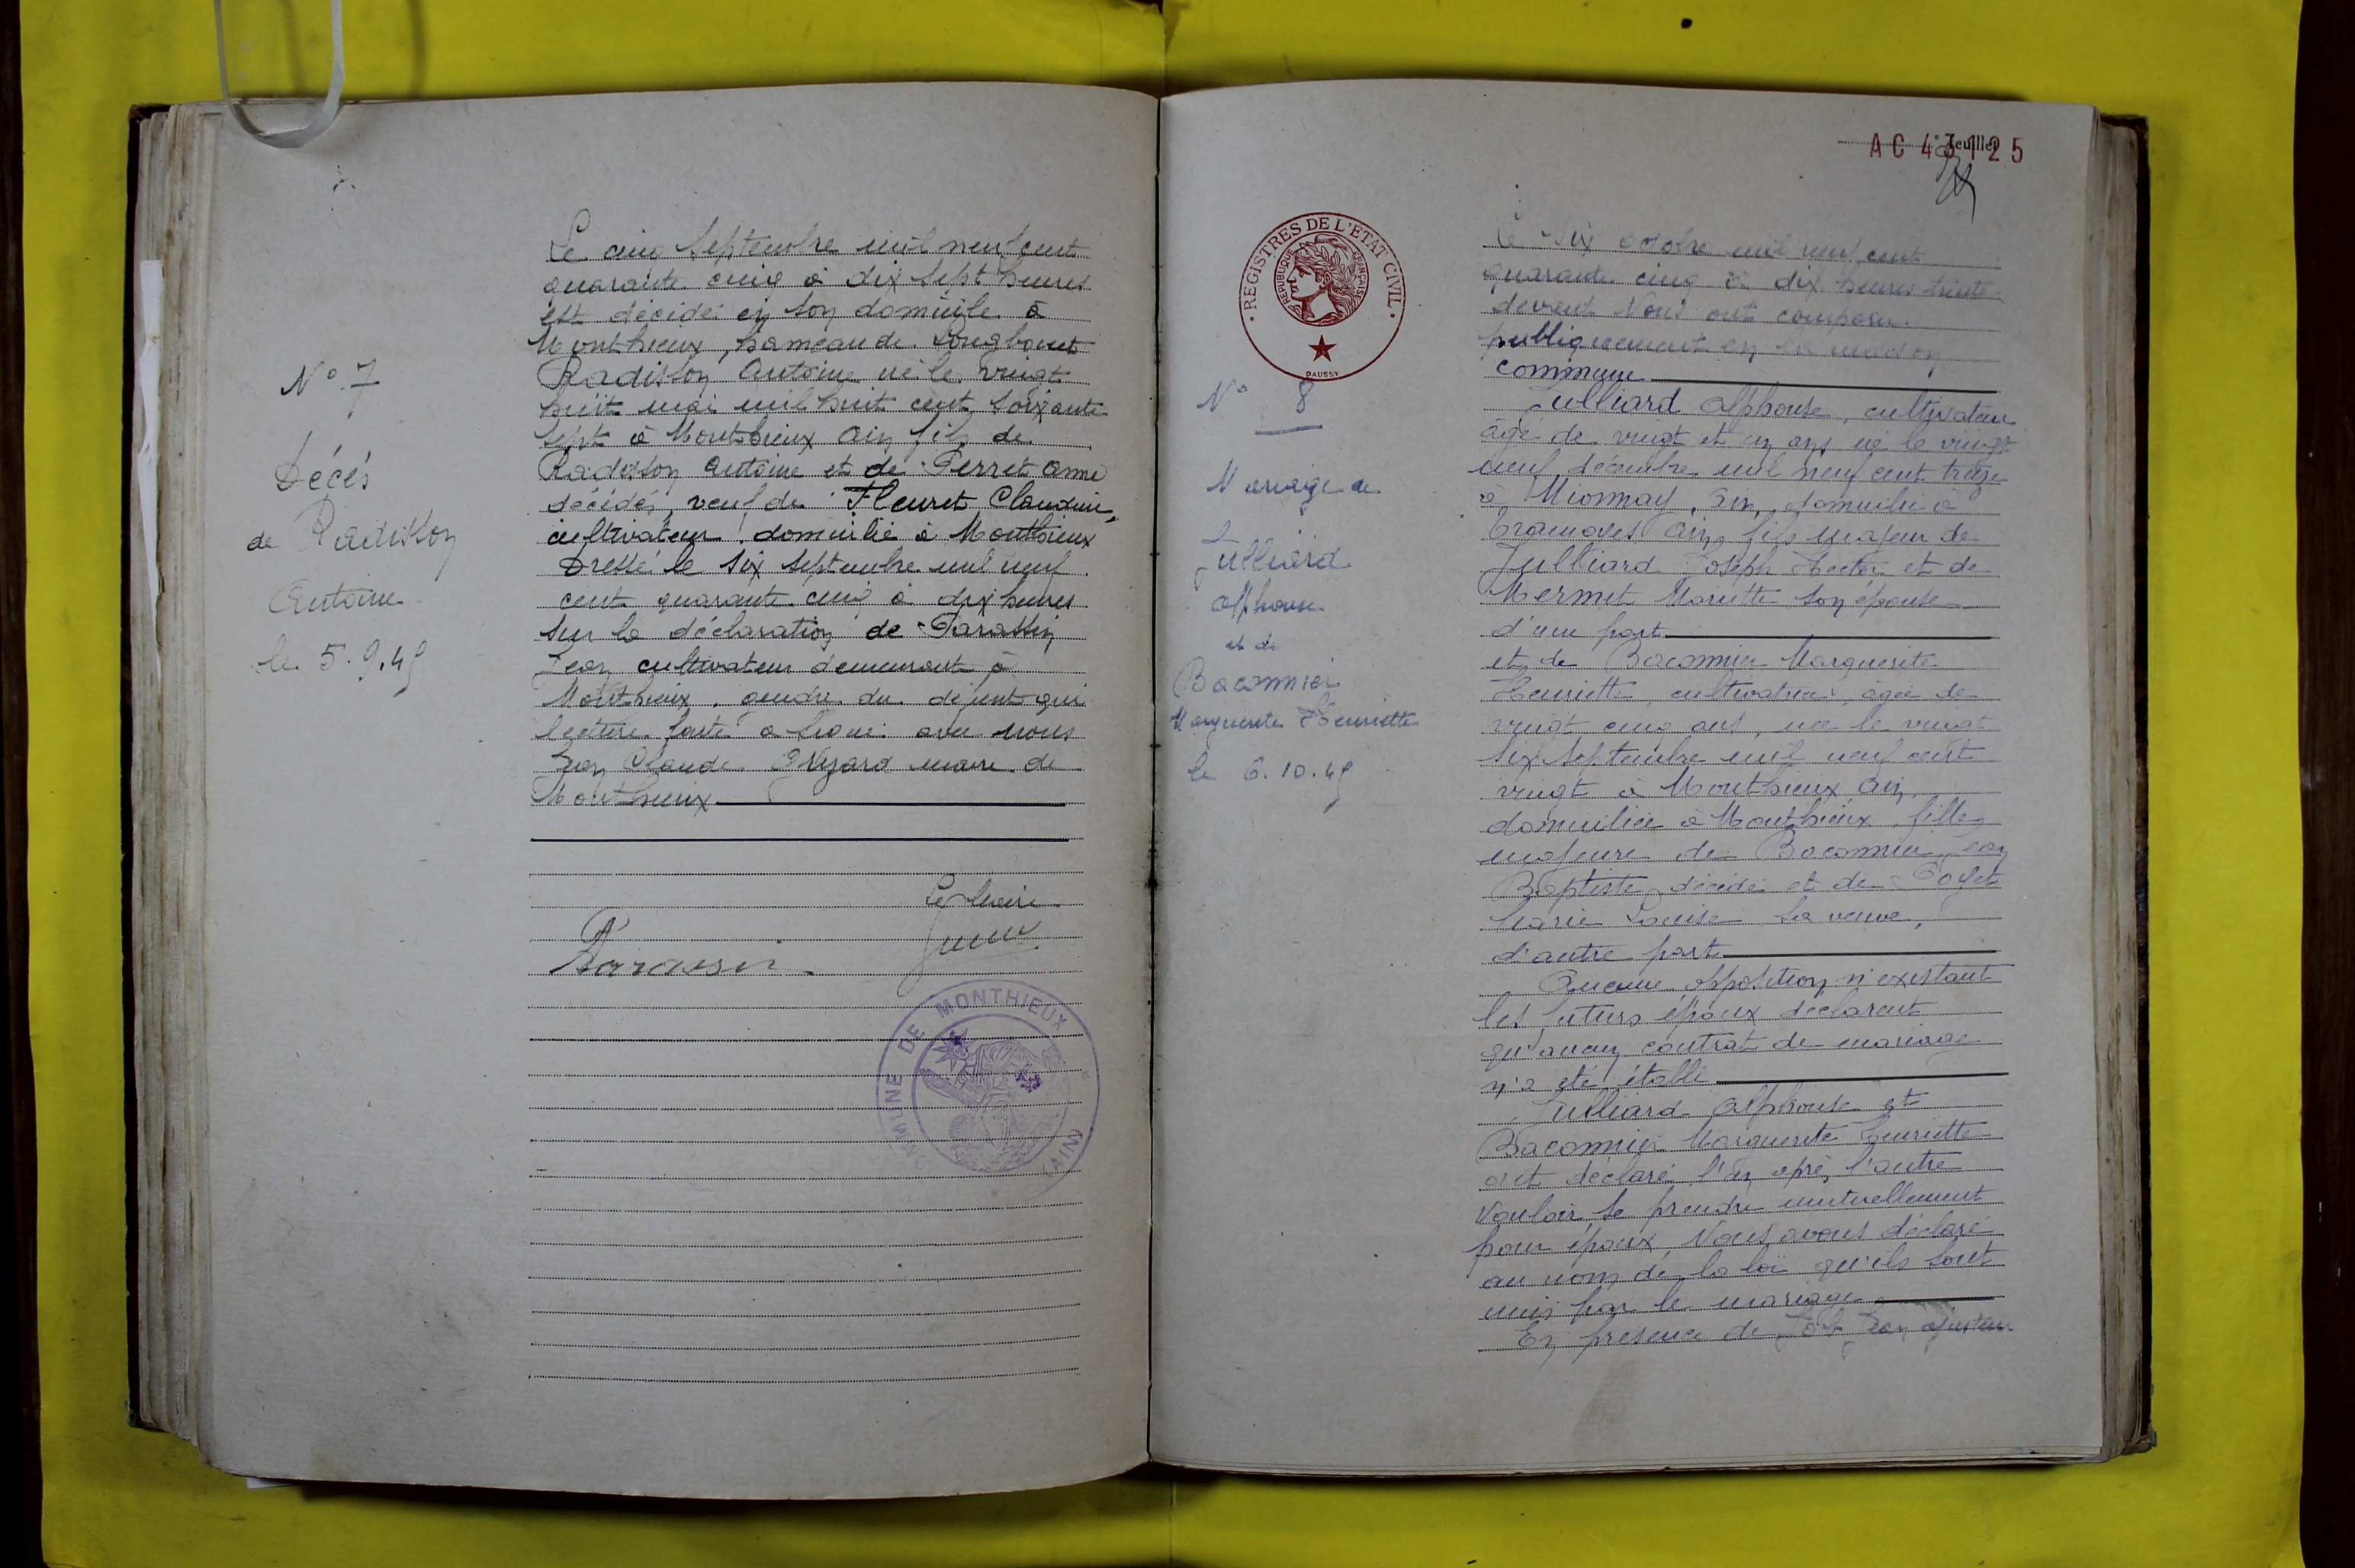 N° 7
Décès
de Radisson
Antoine
le 5.9.45
Le cinq Septembre mil neuf cent
quarante cinq à dix sept heures
est décédé en son domicile à
Monthieux, hameau de
Radisson Antoine né le vingt
huit mai mil huit cent soixante
sept à Monthieux Ain fils de
Radisson Antoine et de Perret Anne
décédés, veuf de Fleuret Claudine,
cultivateur domicilié à Monthieux
Dressé le six septembre mil neuf
cent quarante cinq à dix heures
sur la déclaration de Parassin
Jean cultivateur demeurant à
Monthieux, gendre du défunt qui
lecture faite a signé avec nous
Jean Claude maire de
Monthieux
Le Maire
Parassin
COMMUNE DE MONTHIEUX
(AIN)
AC 43125
Feuillet
REGISTRES DE L'ETAT CIVIL
REPUBLIQUE FRANÇAISE
DAUSSY
N° 8
Mariage de
Julliard
Alphonse
et de
Baconnier
Marguerite Henriette
le 6.10.45
Le six octobre mil neuf cent
quarante cinq à dix heures trente
devant Nous ont comparu
publiquement en la maison
commune
Julliard Alphonse, cultivateur
âgé de vingt et un ans né le vingt
neuf décembre mil neuf cent treize
à Mionnay, Ain, domicilié à
Tramoyes Ain, fils majeur de
Julliard Joseph Hector et de
Mermet Mariette son épouse
d'une part
et de Baconnier Marguerite
Henriette, cultivatrice, âgée de
vingt cinq ans, née le vingt
six septembre mil neuf cent
vingt à Monthieux Ain,
domiciliée à Monthieux, fille
majeure de Baconnier Jean
Baptiste, décédé et de
Marie Louise sa veuve,
d'autre part
Aucune opposition n'existant
les futurs époux déclarent
qu'aucun contrat de mariage
n'a été établi
Julliard Alphonse et
Baconnier Marguerite Henriette
ont déclaré l'un après l'autre
vouloir se prendre mutuellement
pour époux, Nous avons déclaré
au nom de la loi qu'ils sont
unis par le mariage
En présence de Jean ajusteur